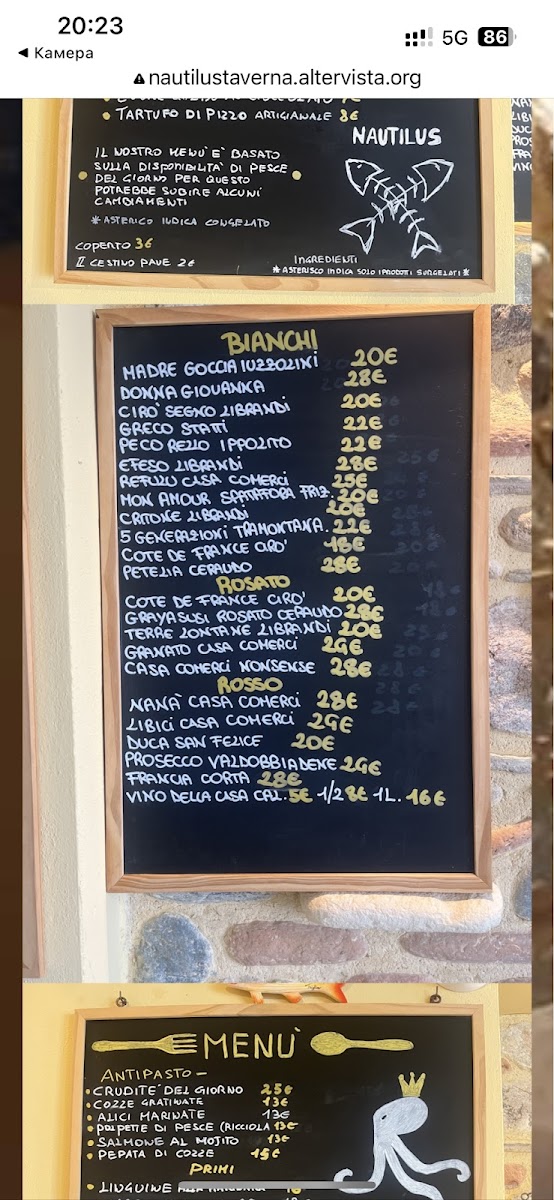 20:23
5G 86
◀ Камера
nautilustaverna.altervista.org
• TARTUFO DI PIZZO ARTIGIANALE 8€
NAUTILUS
IL NOSTRO MENÙ E' BASATO
SULLA DISPONIBILITA' DI PESCE
DEL GIORNO PER QUESTO
POTREBBE SUBIRE ALCUNI
CAMBIAMENTI
* ASTERICO INDICA CONGELATO
COPERTO 3€
IL CESTINO PANE 2€
INGREDIENTI
* ASTERISCO INDICA SOLO I PRODOTTI SURGELATI *
BIANCHI
MADRE GOCCIA IUZZOLINI 20€
DONNA GIOVANNA 28€
CIRO' SEGNO LIBRANDI 20€
GRECO STATTI 22€
PECORELLO IPPOLITO 22€
EFESO LIBRANDI 28€
REFULU CASA COMERCI 25€
MON AMOUR SPATAFORA FRIZ. 20€
CRITONE LIBRANDI 20€
5 GENERAZIONI TRAMONTANA. 22€
COTE DE FRANCE CIRO' 18€
PETELIA CERAUDO 28€
ROSATO
COTE DE FRANCE CIRO' 20€
GRAYASUSI ROSATO CERAUDO 28€
TERRE LONTANE LIBRANDI 20€
GRANATO CASA COMERCI 26€
CASA COMERCI NONSENSE 28€
ROSSO
NANÀ CASA COMERCI 28€
LIBICI CASA COMERCI 26€
DUCA SAN FELICE 20€
PROSECCO VALDOBBIADENE 26€
FRANCIA CORTA 28€
VINO DELLA CASA CAL. 5€ 1/2 8€ 1L. 16€
MENÙ
ANTIPASTO –
• CRUDITE' DEL GIORNO 25€
• COZZE GRATINATE 13€
• ALICI MARINATE 13€
• POLPETTE DI PESCE (RICCIOLA 13€
• SALMONE AL MOJITO 13€
• PEPATA DI COZZE 15€
PRIMI
• LINGUINE